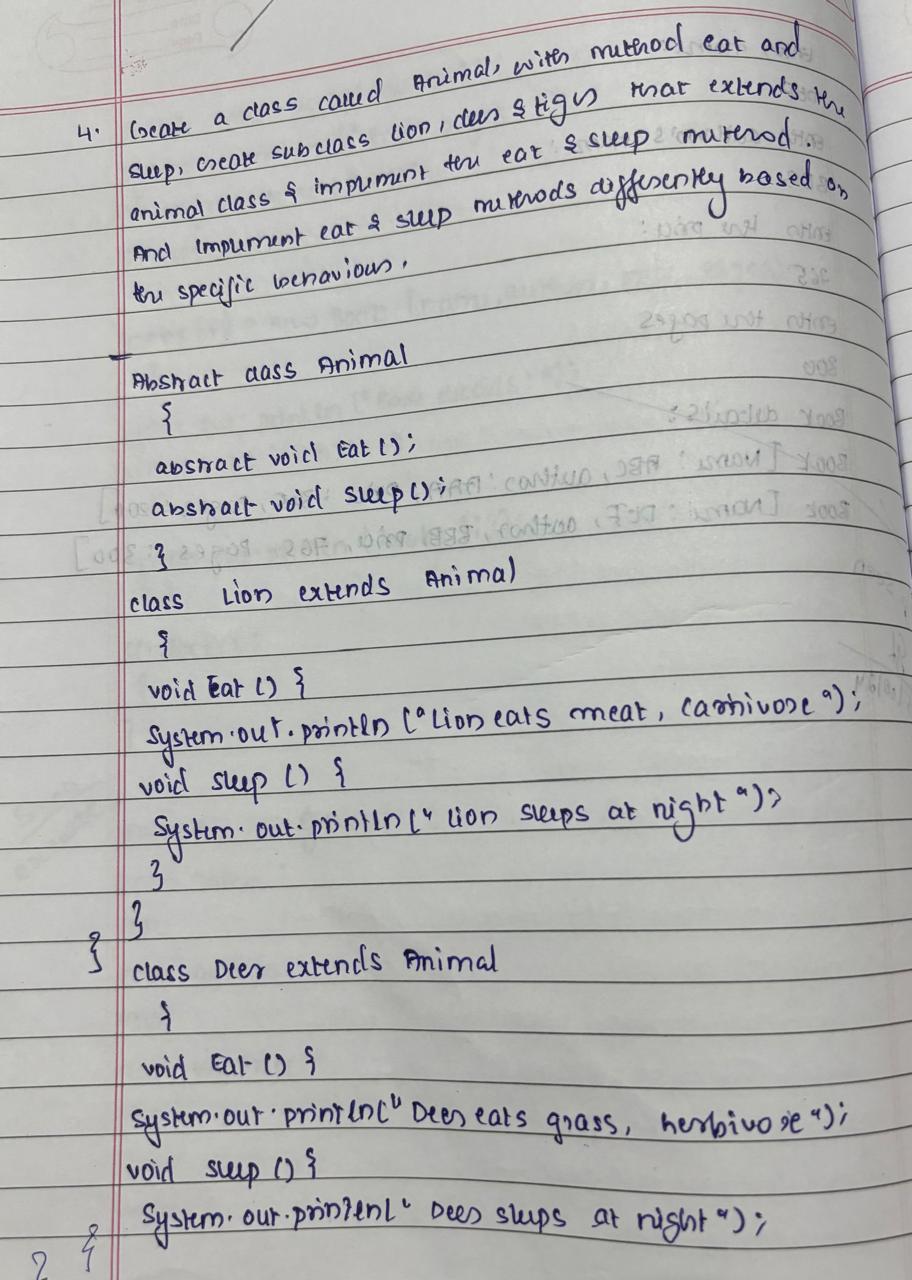 4. Create a class called Animal, with method eat and
sleep, create subclass lion, deer & tiger that extends the
animal class & implement the eat & sleep method.
And implement eat & sleep methods differently based on
the specific behaviour.
Abstract class Animal
{
abstract void Eat ();
abstract void sleep();
}
class Lion extends Animal
{
void Eat () {
System.out.println ("Lion eats meat, carnivore");
void sleep () {
System.out.println (" lion sleeps at night");
}
}
}
class Deer extends Animal
{
void Eat () {
System.out.println(" Deer eats grass, herbivore");
void sleep () {
System.out.println(" Deer sleeps at night");